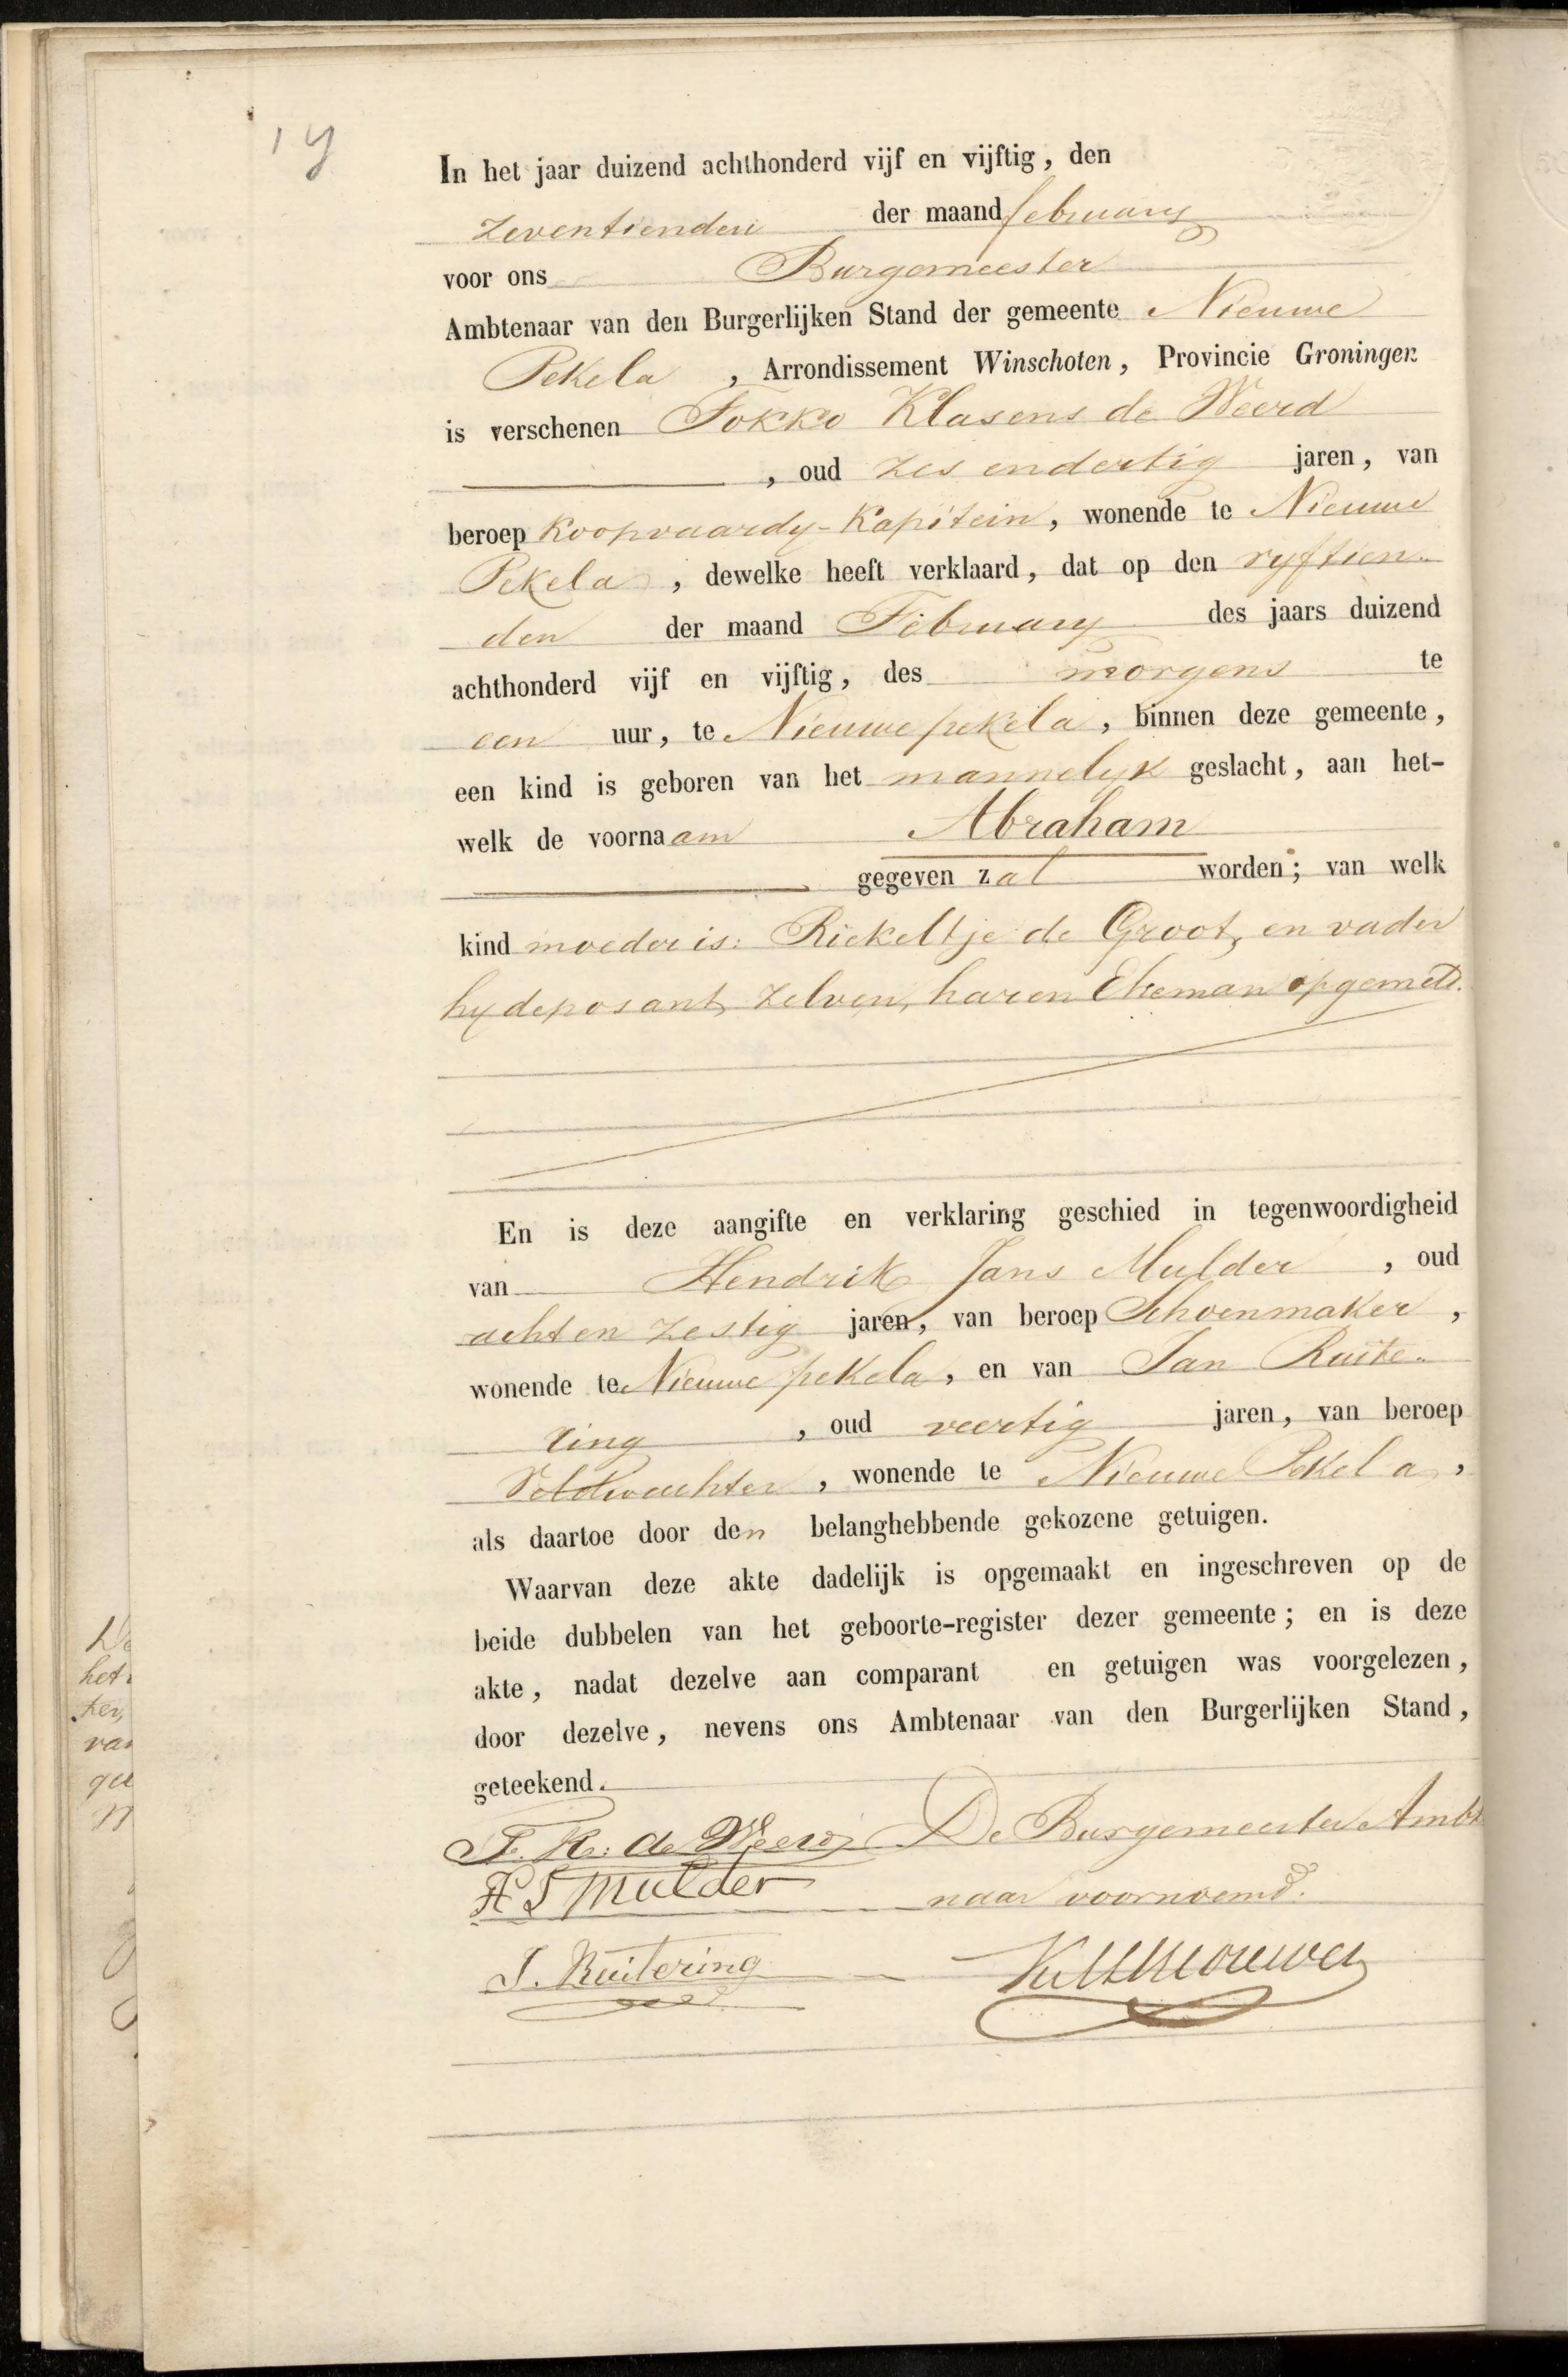 19
In het jaar duizend achthonderd vijf en vijftig, den
zeventienden der maand february
voor ons Burgemeester
Ambtenaar van den Burgerlijken Stand der gemeente Nieuwe
Pekela, Arrondissement Winschoten, Provincie Groningen
is verschenen Fokko Klasens de Weerd
, oud zes endertig jaren, van
beroep Koopvaardy-Kapitein, wonende te Nieuwe
Pekela, dewelke heeft verklaard, dat op den vyftien-
den der maand February des jaars duizend
achthonderd vijf en vijftig, des morgens te
een uur, te Nieuwe pekela, binnen deze gemeente,
een kind is geboren van het mannelyk geslacht, aan het-
welk de voornaam Abraham
gegeven zal worden; van welk
kind moeder is: Riekeltje de Groot, en vader
hy deposant zelven, haren Eheman opgemeld.
En is deze aangifte en verklaring geschied in tegenwoordigheid
van Hendrik Jans Mulder, oud
acht en zestig jaren, van beroep Schoenmaker,
wonende te Nieuwe pekela, en van Jan Ruite-
ring, oud veertig jaren, van beroep
Veldwachter, wonende te Nieuwe Pekela,
als daartoe door den belanghebbende gekozene getuigen.
Waarvan deze akte dadelijk is opgemaakt en ingeschreven op de
beide dubbelen van het geboorte-register dezer gemeente; en is deze
akte, nadat dezelve aan comparant en getuigen was voorgelezen,
door dezelve, nevens ons Ambtenaar van den Burgerlijken Stand,
geteekend.
F. K. de Weerd De Burgemeester Ambt
H J Mulder naar voornoemd.
J. Ruitering